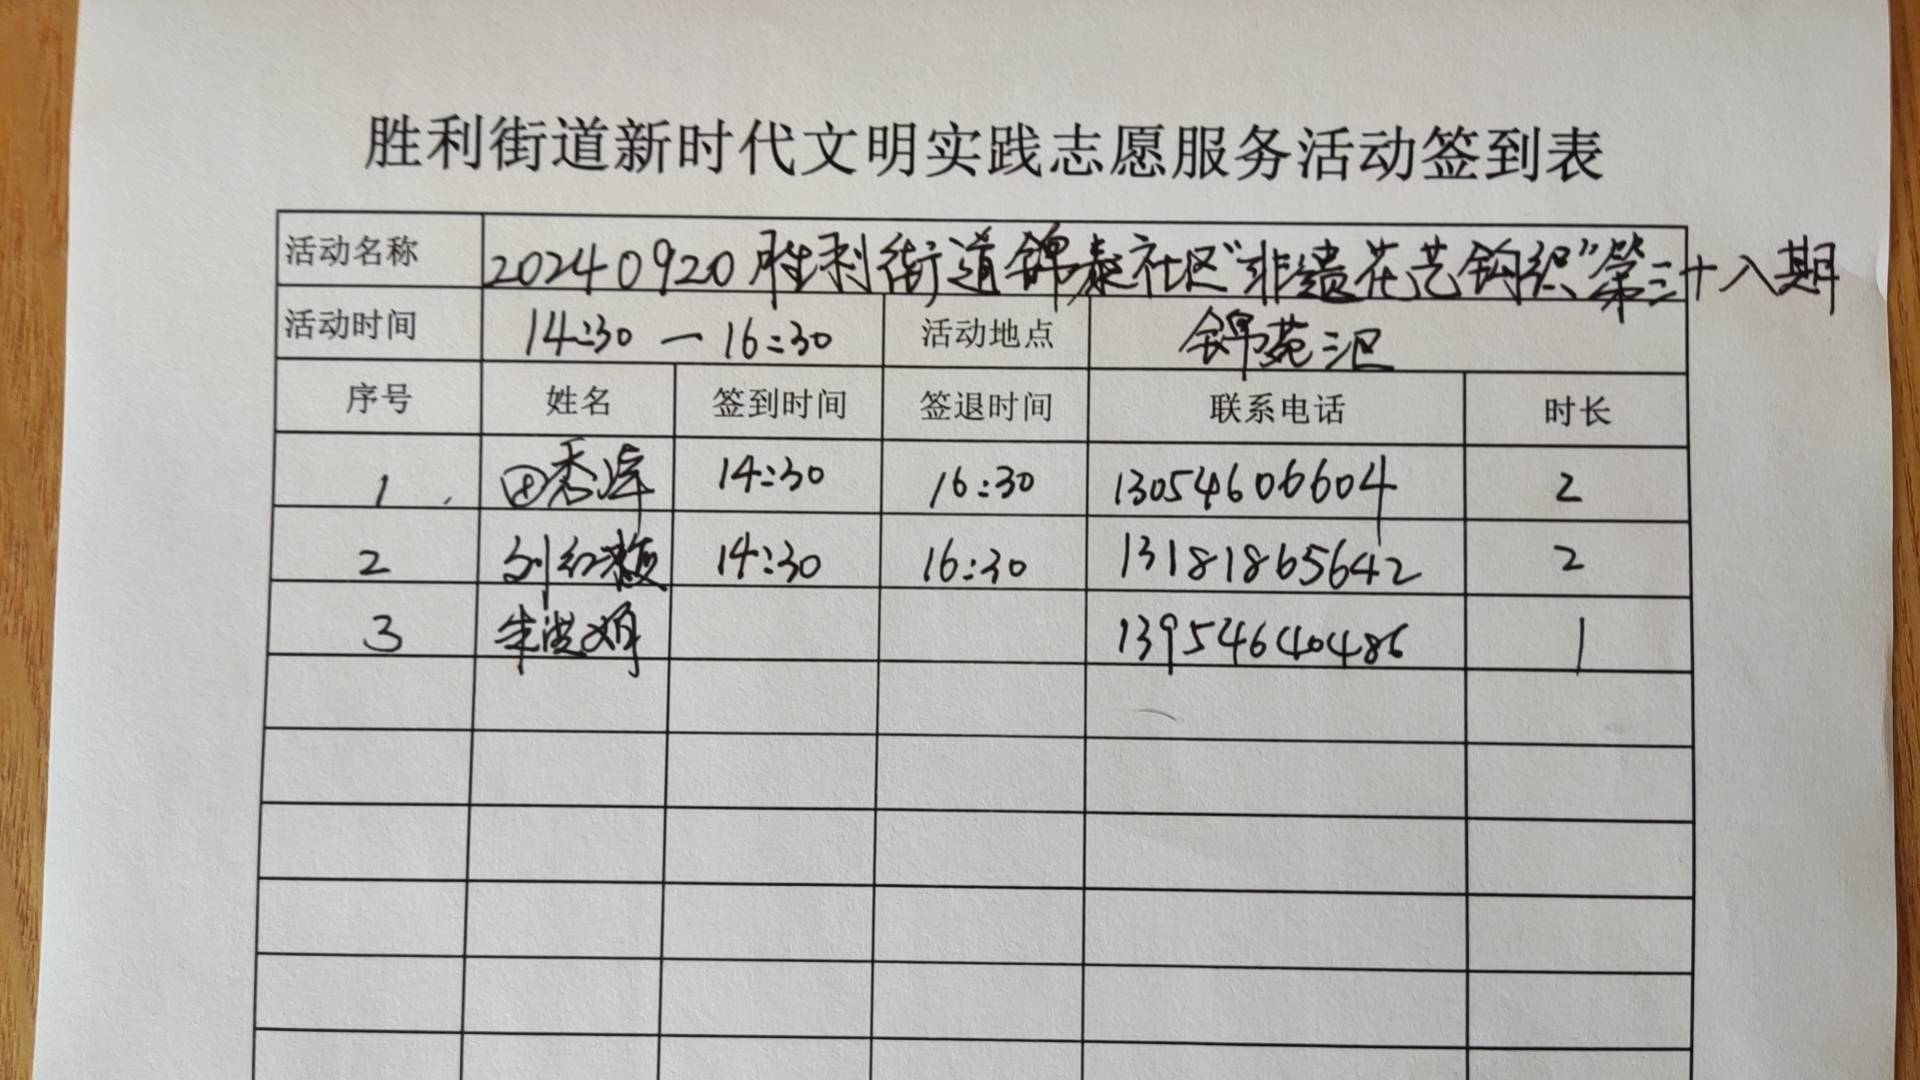 胜利街道新时代文明实践志愿服务活动签到表
活动名称 20240920胜利街道锦泰社区“非遗花艺钩织”第三十八期
活动时间 14:30—16:30 活动地点 锦苑三区
序号 姓名 签到时间 签退时间 联系电话 时长
1 田秀 14:30 16:30 13054606604 2
2 刘红 14:30 16:30 13181865642 2
3 朱洪娟 13954640486 1